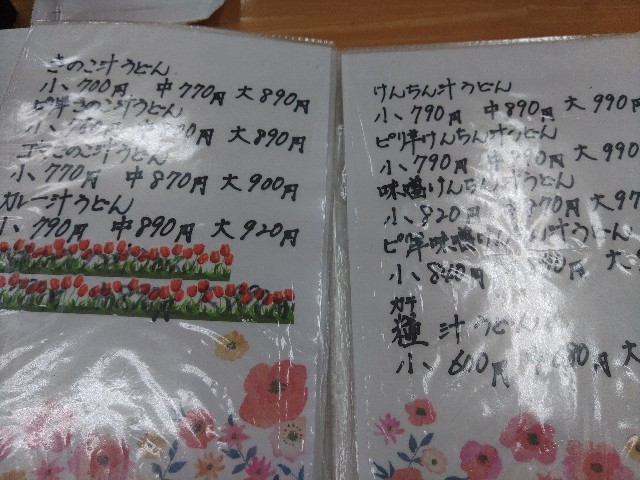 きのこ汁うどん
小、700円 中770円 大890円
ピリ辛きのこ汁うどん
小、 円 大890円
きのこ汁うどん
小、770円 中870円 大900円
カレー汁うどん
小、790円 中890円 大920円
けんちん汁うどん
小、790円 中890円 大990円
ピリ辛けんちん汁うどん
小、790円 中 大990
味噌けんちん汁うどん
小、820円
ピリ辛味噌 汁うどん
小、
カテ
糧汁うどん
小、600円 680円 大